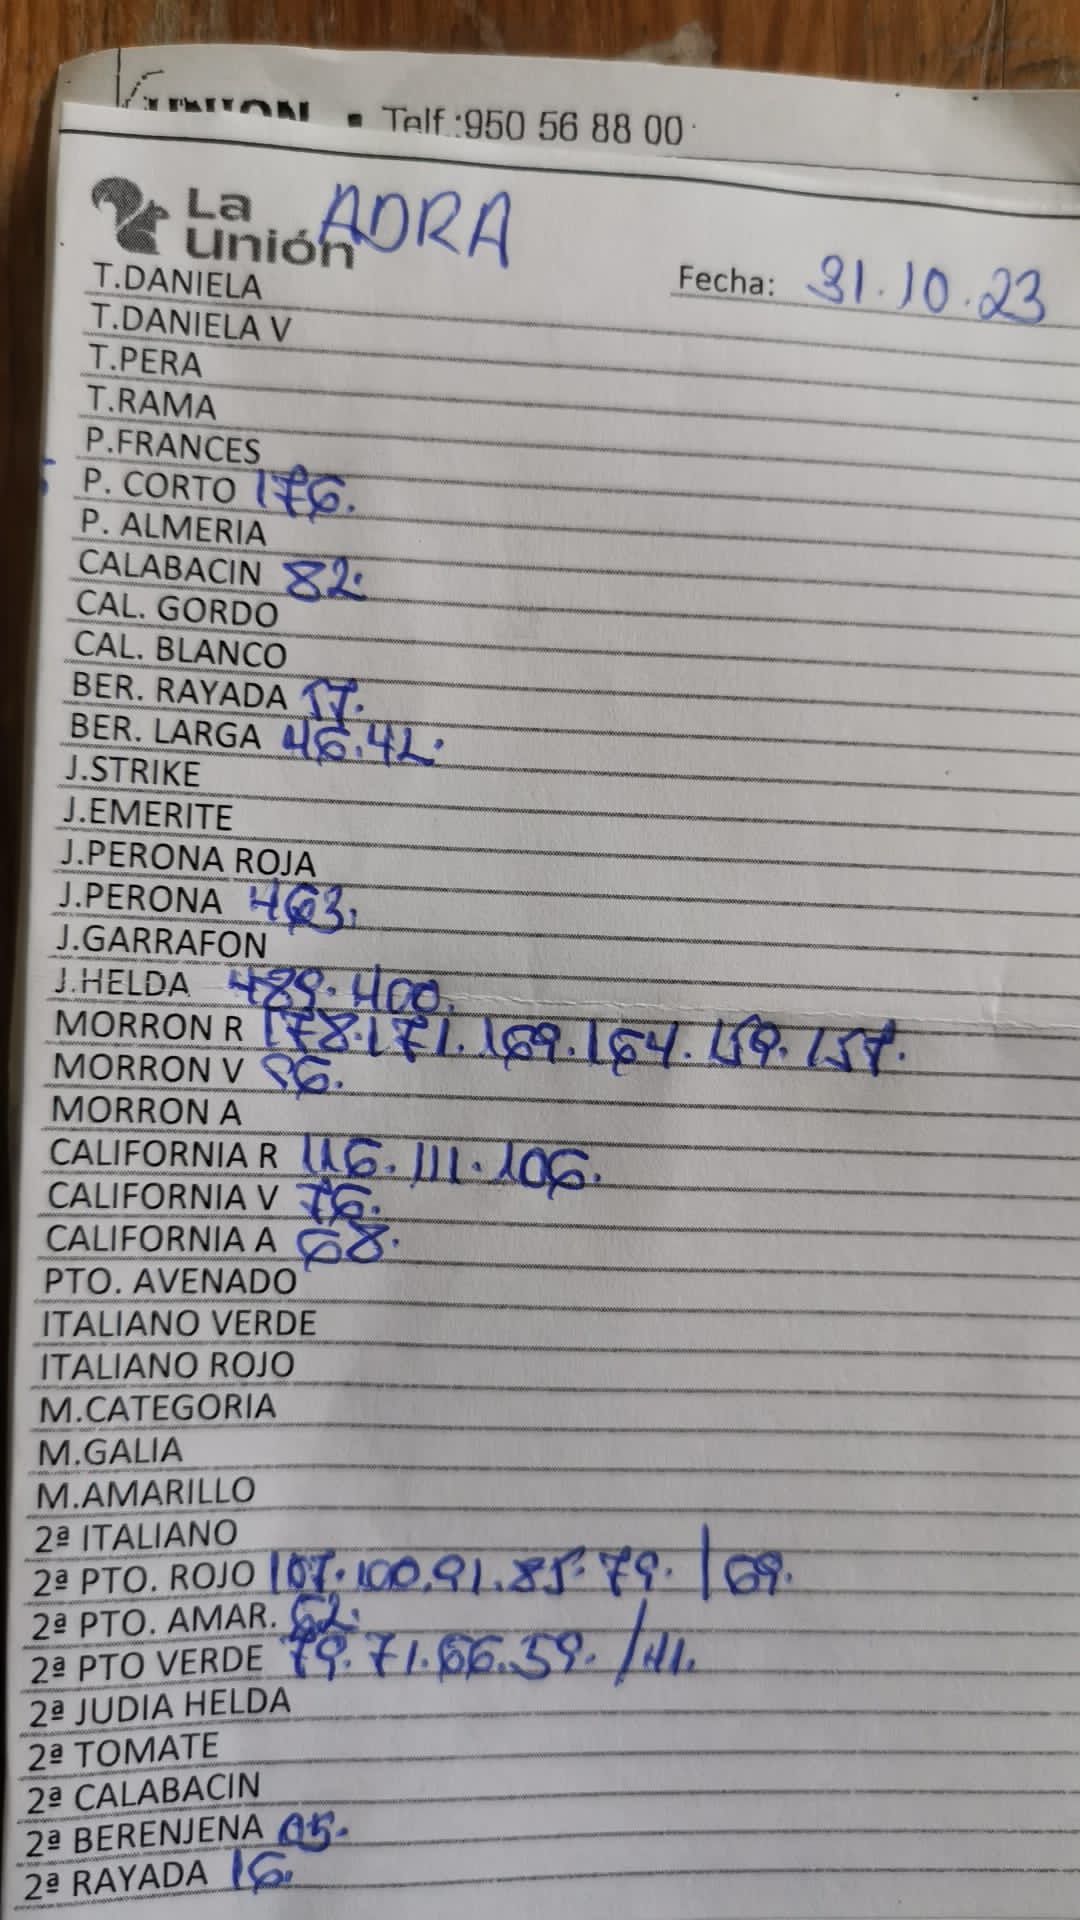 UNION • Telf.:950 56 88 00
La Unión ADRA
Fecha: 31.10.23
T.DANIELA
T.DANIELA V
T.PERA
T.RAMA
P.FRANCES
P. CORTO 176.
P. ALMERIA
CALABACIN 82.
CAL. GORDO
CAL. BLANCO
BER. RAYADA 57.
BER. LARGA 46.42.
J.STRIKE
J.EMERITE
J.PERONA ROJA
J.PERONA 463.
J.GARRAFON
J.HELDA 489.400.
MORRON R 178.171.169.164.159.157.
MORRON V
MORRON A
CALIFORNIA R 116.111.106.
CALIFORNIA V 76.
CALIFORNIA A 68.
PTO. AVENADO
ITALIANO VERDE
ITALIANO ROJO
M.CATEGORIA
M.GALIA
M.AMARILLO
2ª ITALIANO
2ª PTO. ROJO 107.100.91.85.79./69.
2ª PTO. AMAR. 62.
2ª PTO VERDE 79.71.66.59./41.
2ª JUDIA HELDA
2ª TOMATE
2ª CALABACIN
2ª BERENJENA 05.
2ª RAYADA 16.